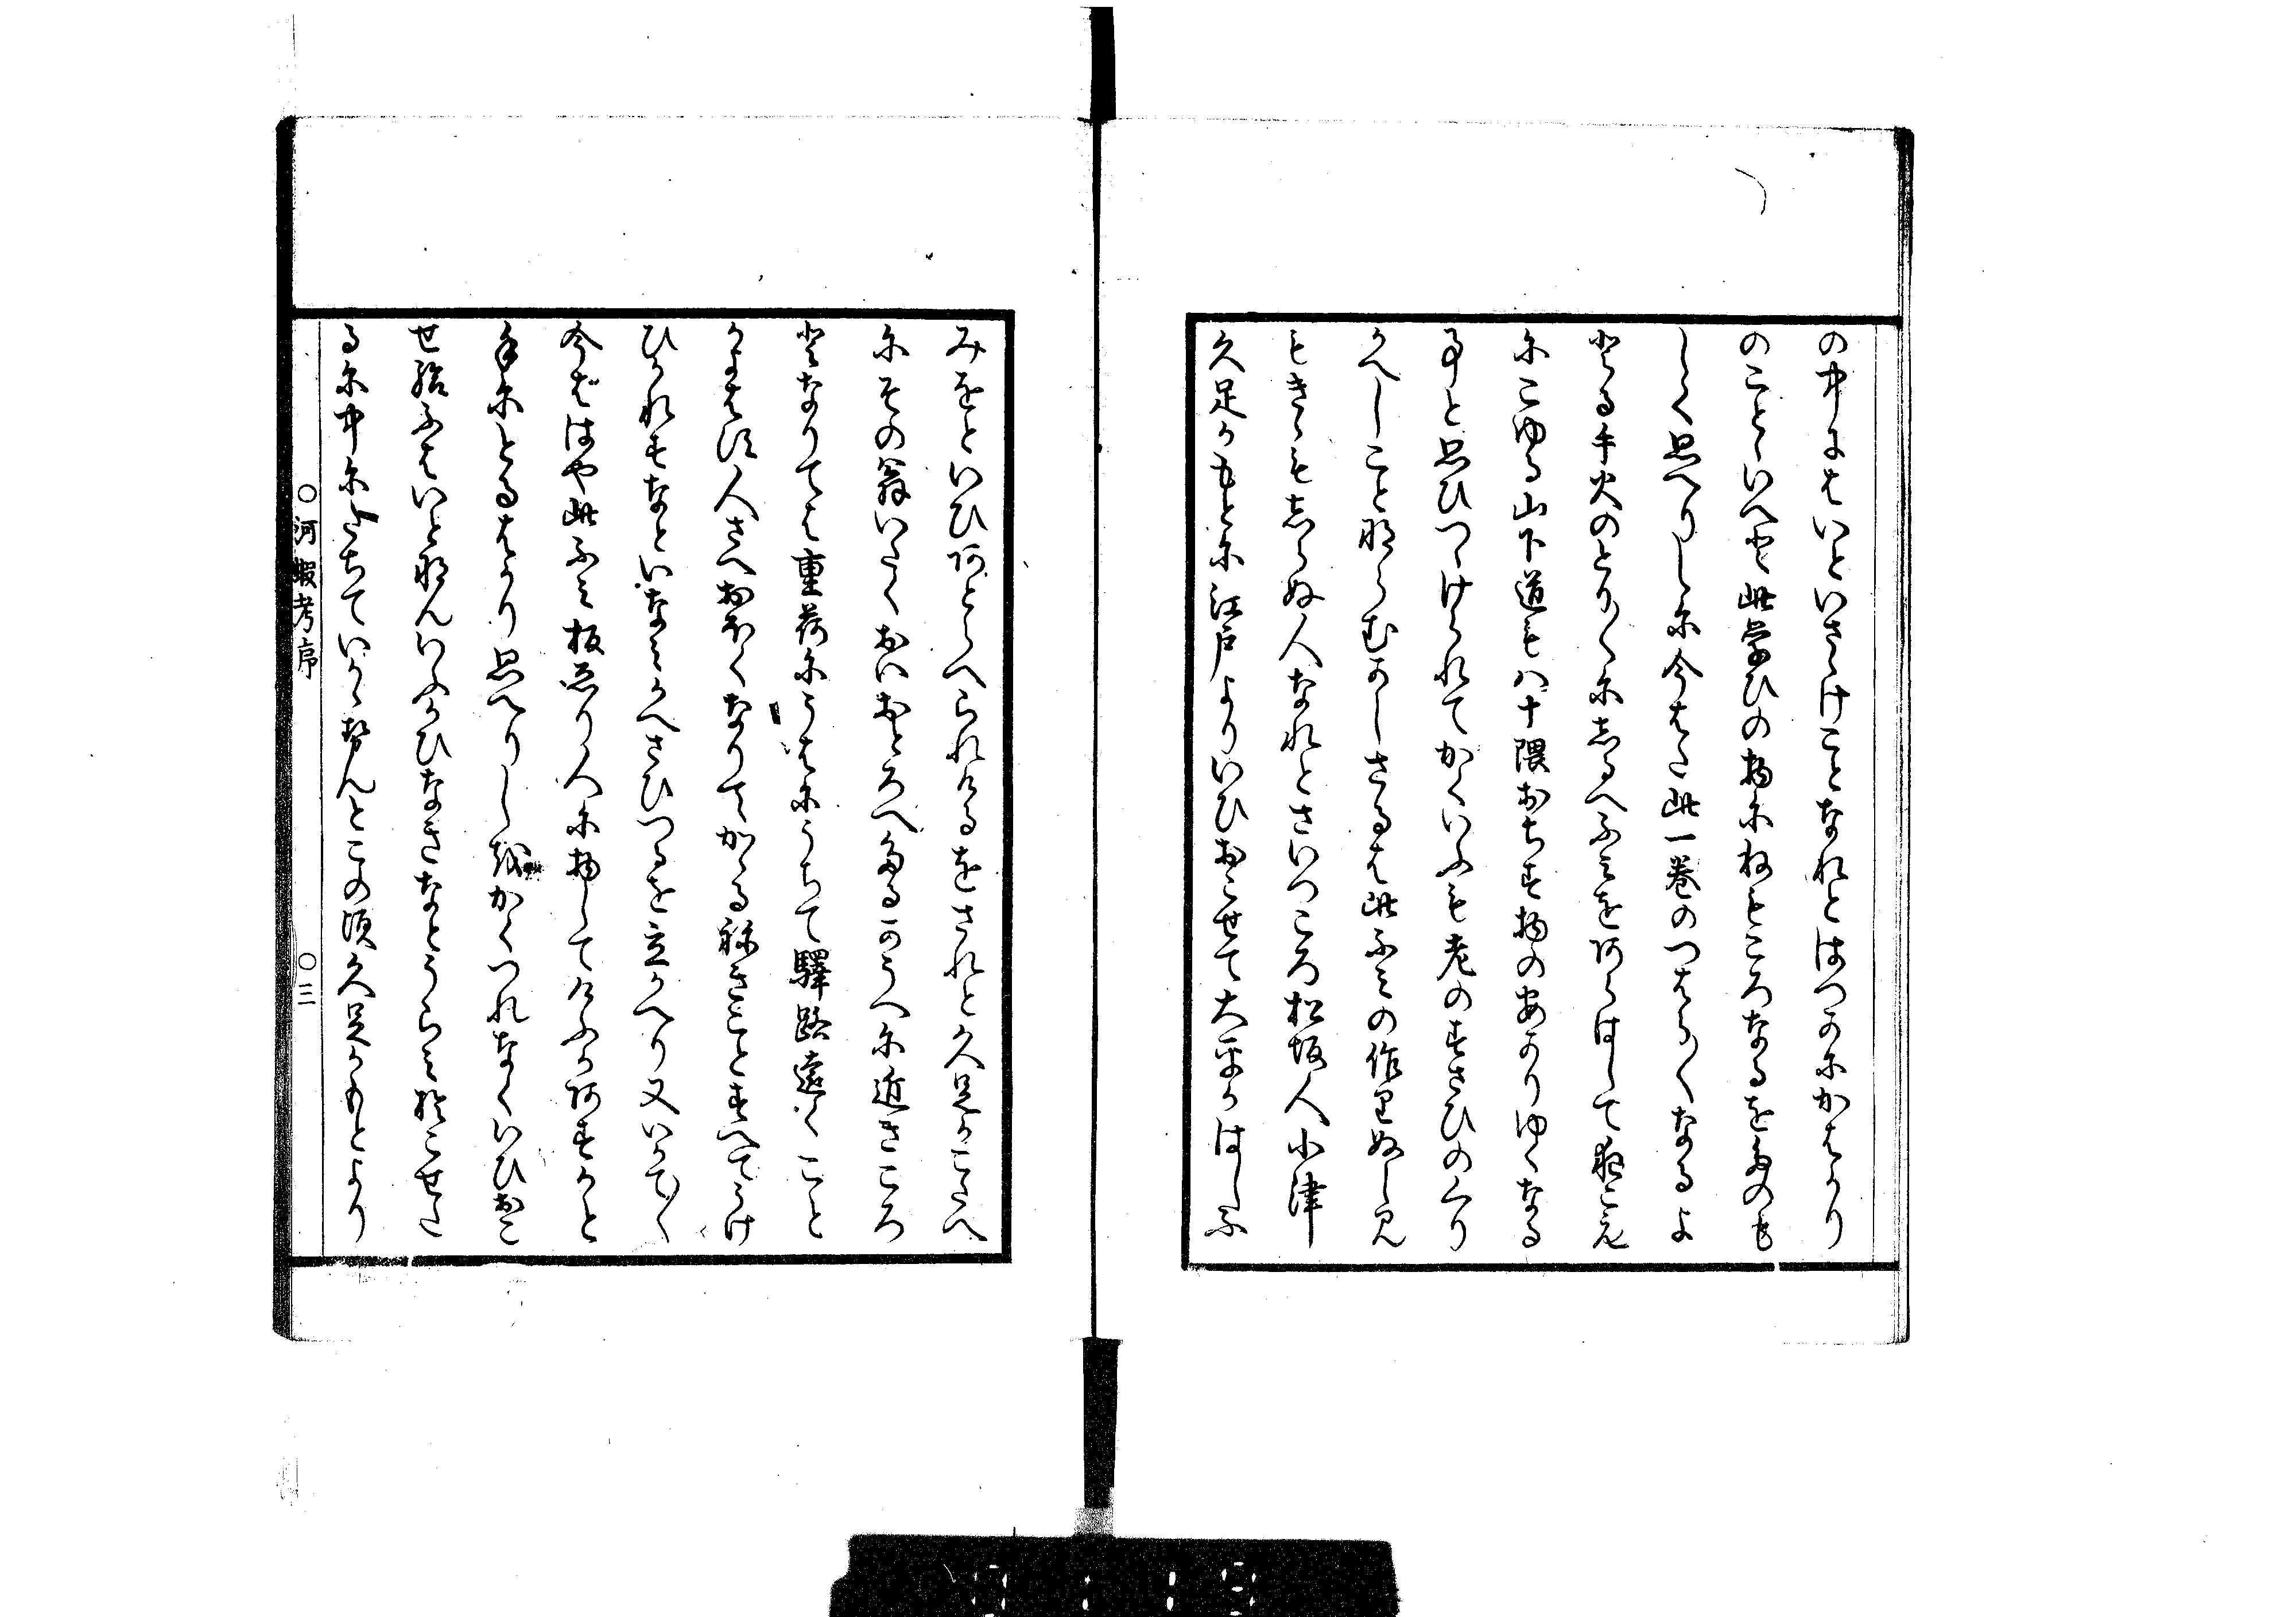 の中にはいといさゝけことなれとはつかにかはかり
のことゝいへと此学ひの物にねもころなるをたのも
しく思へりしに今はた此一巻のつはら〳〵なるよ
とる手火のとり〳〵にしるへふみをあらはして夜こえ
にこゆる山下道も八十隈おち
と思ひつゝけられてかくいふも老のすさひのくり
かへしことならむかしさるは此ふみの作りぬし
もきゝもしらぬ人なれとさいつころ松坂人小津
久足かもとに江戸よりいひおこせて大平かはしふ
みをといひあとらへられけるをされと久足かこたへ
にその翁いたくおいおとろへたるかうへに近きころ
となりては重荷にうはにうちて驛路遠くこと
かよはす人さへおほくなりてかゝるねきことすへてうけ
ひかれすなといなみかへさひつるを立かへり又いかて〳〵
今ははや此ふみ板ゑり人に物してけふかあすかと
手にとるはかり思へりしをかくつれなくいひおこ
せ給ふはいとなんいふかひなきなとうらみおこせた
るに中にたちていかゝせんとこの頃久足かもとより
○河蝦考序 ○三